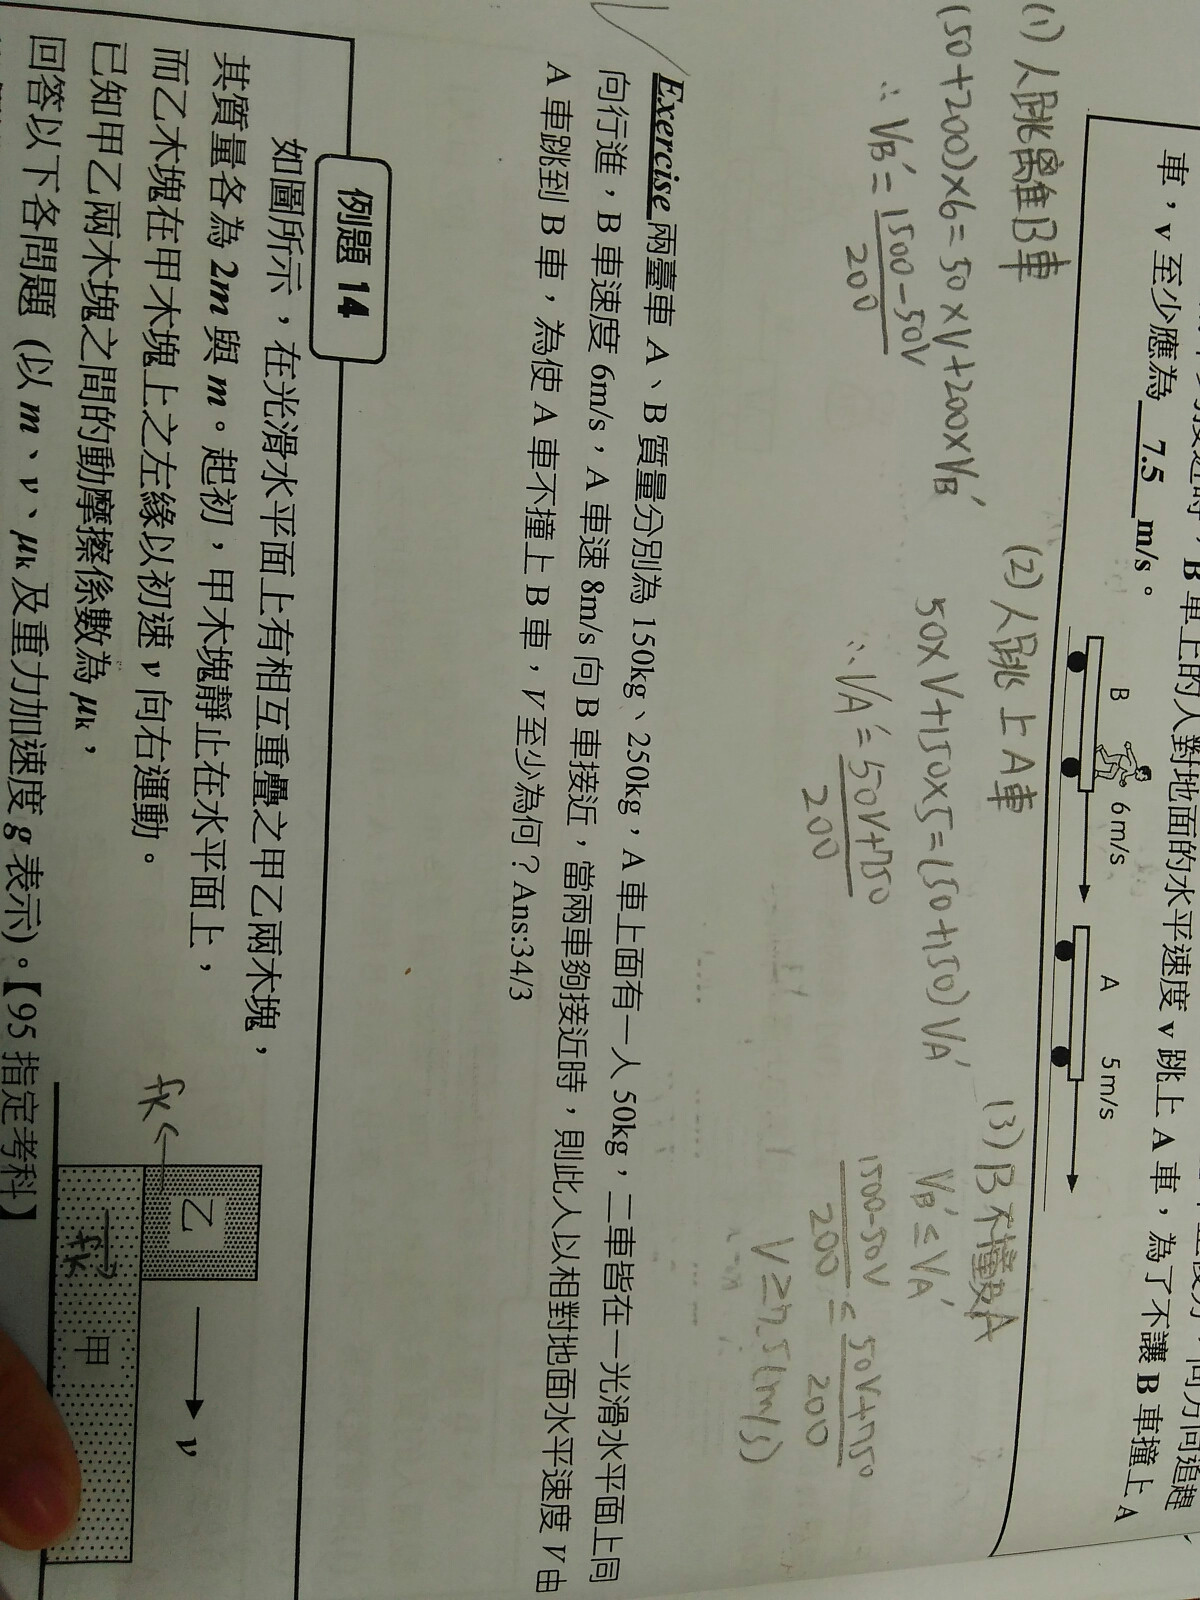 車，v 至少應為 7.5 m/s。
B 車上的人對地面的水平速度 v 跳上 A 車，為了不讓 B 車撞上 A
B
6m/s
A
5m/s
(1) 人跳離B車
(50+200)×6=50×V+200×VB'
∴ VB'= 1500-50V
200
(2) 人跳上A車
50×V+150×5=(50+150)VA'
∴ VA'= 50V+750
200
(3) B不撞A
VB' ≤ VA'
1500-50V ≤ 50V+750
200 200
V≥7.5(m/s)
Exercise 兩臺車 A、B 質量分別為 150kg、250kg，A 車上面有一人 50kg，二車皆在一光滑水平面上同
向行進，B 車速度 6m/s，A 車速 8m/s 向 B 車接近，當兩車夠接近時，則此人以相對地面水平速度 V 由
A 車跳到 B 車，為使 A 車不撞上 B 車，V 至少為何？Ans:34/3
例題 14
如圖所示，在光滑水平面上有相互重疊之甲乙兩木塊，
其質量各為 2m 與 m。起初，甲木塊靜止在水平面上，
而乙木塊在甲木塊上之左緣以初速 v 向右運動。
已知甲乙兩木塊之間的動摩擦係數為 μk，
回答以下各問題 (以 m、v、μk 及重力加速度 g 表示)。【95 指定考科】
fk
乙
v
fk
甲